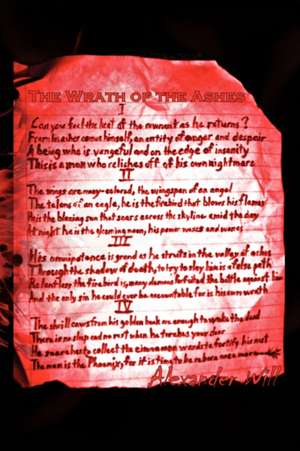 The Wrath of the Ashes
I
Can you feel the heat of the moment as he returns?
From his ashes comes himself, an entity of anger and despair
A being who is vengeful and on the edge of insanity
This is a man who reliches off of his own nightmare
II
The wings are many-colored, the wingspan of an angel
The talons of an eagle, he is the firebird that blows his flames
He is the blazing sun that soars across the skyline amid the day
At night he is the gleaming moon, his power waxes and wanes
III
His omnipotence is grand as he struts in the valley of ashes
Through the shadow of death, to try to slay him is a false path
Relentless the firebird is, many damned forfeited the battle against him
And the only sin he could ever be accountable for is his own wrath
IV
The shrill caws from his golden beak are enough to wake the dead
There is no sleep and no rest when he torches your door
He searches to collect the cinnamon words to fortify his nest
The man is the Phoenix, for it is time to be reborn once more
Alexander Will